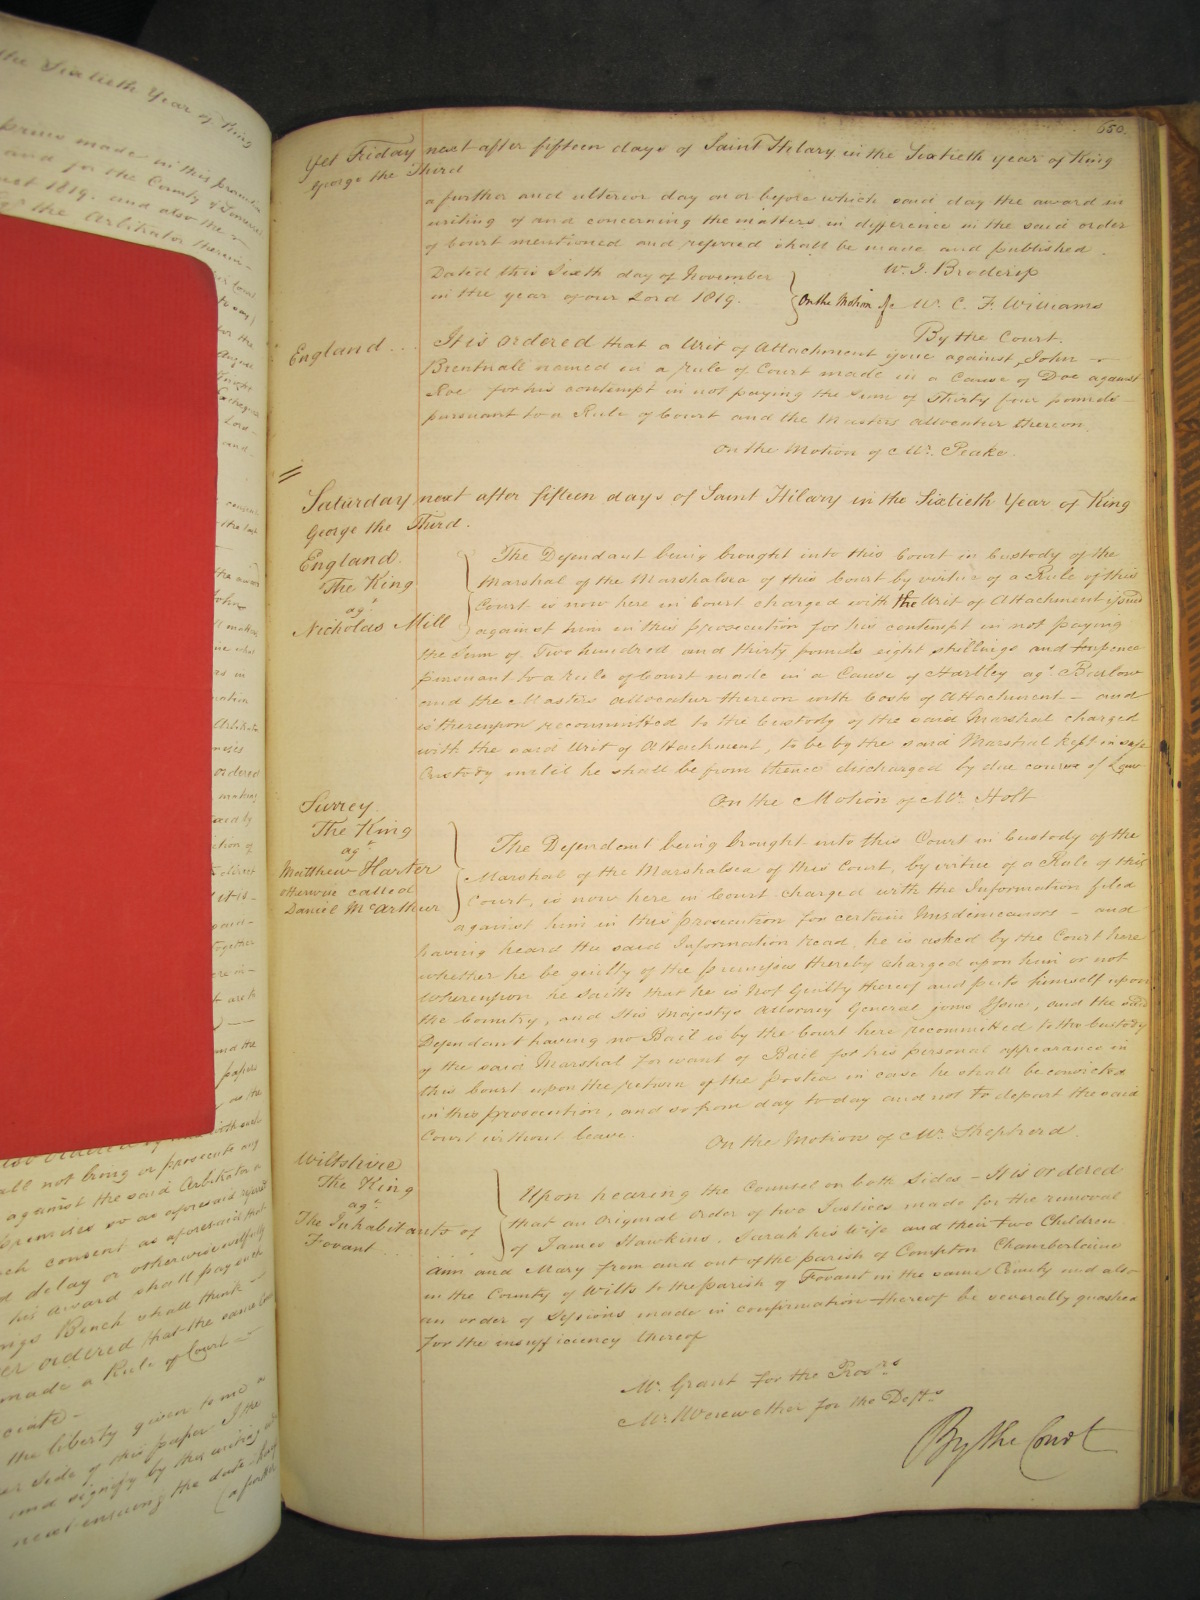 the Sixtieth Year of King
made in this
and for the County of Somerset
1819. and also the
the Arbitrator therein
all not bring or prosecute any
against the said Arbitrator
premises so as aforesaid
consent as aforesaid that
delay or otherwise wilfully
his award shall pay such
Bench shall think
ordered that the same
made a Rule of Court
the liberty given to me
side of this paper I the
and signify by this writing
next ensuing the date
(a further
650.
Yet Friday next after fifteen days of Saint Hilary in the Sixtieth year of King
George the Third
a further and ulterior day on or before which said day the award in
writing of and concerning the matters in difference in the said order
of Court mentioned and referred shall be made and published.
Dated this Sixth day of November
in the year of our Lord 1819.
W. J. Broderip
On the Motion of W. C. F. Williams
By the Court.
England
It is ordered that a Writ of Attachment issue against John
Brentnall named in a Rule of Court made in a Cause of Doe against
Roe for his contempt in not paying the sum of Thirty four pounds
pursuant to a Rule of Court and the Masters allocatur thereon.
On the Motion of Mr. Peake.
Saturday next after fifteen days of Saint Hilary in the Sixtieth Year of King
George the Third.
England.
The King
agt
Nicholas Mill
The Defendant being brought into this Court in Custody of the
Marshal of the Marshalsea of this Court by virtue of a Rule of this
Court is now here in Court charged with the Writ of Attachment issued
against him in this prosecution for his contempt in not paying
the Sum of Two hundred and thirty pounds eight shillings and
pursuant to a Rule of Court made in a Cause of Hartley agt
and the Masters allocatur thereon with Costs of Attachment - and
is thereupon recommitted to the Custody of the said Marshal charged
with the said Writ of Attachment, to be by the said Marshal kept in safe
Custody until he shall be from thence discharged by due course of Law
On the Motion of Mr. Holt
Surrey.
The King
agt
Matthew Harter
otherwise called
Daniel McArthur
The Defendant being brought into this Court in Custody of the
Marshal of the Marshalsea of this Court, by virtue of a Rule of this
Court, is now here in Court charged with the Information filed
against him in this prosecution for certain Misdemeanors - and
having heard the said Information read, he is asked by the Court here
whether he be guilty of the premises thereby charged upon him or not
Whereupon he saith that he is Not Guilty thereof and puts himself upon
the Country, and His Majestys Attorney General joins Issue, and the said
Defendant having no Bail is by the Court here recommitted to the Custody
of the said Marshal for want of Bail for his personal appearance in
this Court upon the return of the postea in case he shall be convicted
in this prosecution, and so from day to day and not to depart the said
Court without leave.
On the Motion of Mr. Shepherd.
Wiltshire
The King
agt
The Inhabitants of
Fovant
Upon hearing the Counsel on both Sides - It is ordered
that an Original Order of two Justices made for the removal
of James Hawkins, Sarah his Wife and their two Children
Ann and Mary from and out of the parish of Compton Chamberlaine
in the County of Wilts to the parish of Fovant in the same County and also
an order of Sessions made in confirmation thereof be severally quashed
for the insufficiency thereof
Mr. Grant for the Prosrs
Mr. Merewether for the Defts
By the Court